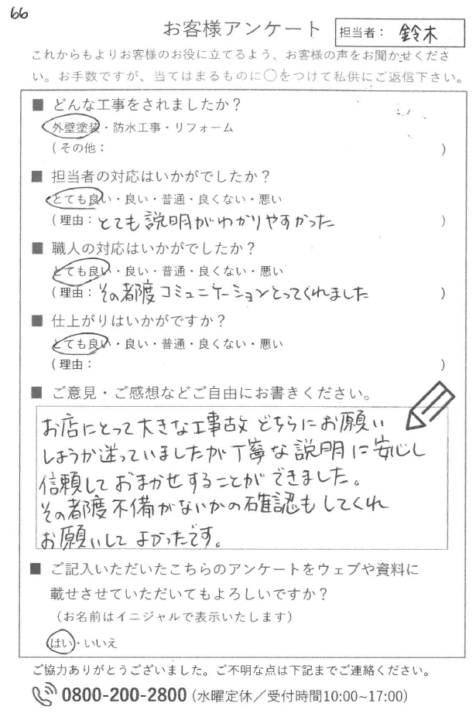 66
お客様アンケート
担当者： 鈴木
これからもよりお客様のお役に立てるよう、お客様の声をお聞かせくださ
い。お手数ですが、当てはまるものに○をつけて私供にご返信下さい。
■ どんな工事をされましたか？
外壁塗装・防水工事・リフォーム
（その他： ）
■ 担当者の対応はいかがでしたか？
とても良い・良い・普通・良くない・悪い
（理由：とても説明がわかりやすかった ）
■ 職人の対応はいかがでしたか？
とても良い・良い・普通・良くない・悪い
（理由：その都度コミュニケーションとってくれました ）
■ 仕上がりはいかがですか？
とても良い・良い・普通・良くない・悪い
（理由： ）
■ ご意見・ご感想などご自由にお書きください。
お店にとって大きな工事故 どちらにお願い
しようか迷っていましたが丁寧な説明に安心し
信頼しておまかせすることができました。
その都度不備がないかの確認もしてくれ
お願いしてよかったです。
■ ご記入いただいたこちらのアンケートをウェブや資料に
載せさせていただいてもよろしいですか？
（お名前はイニシャルで表示いたします）
はい・いいえ
ご協力ありがとうございました。ご不明な点は下記までご連絡ください。
0800-200-2800（水曜定休／受付時間10:00~17:00）